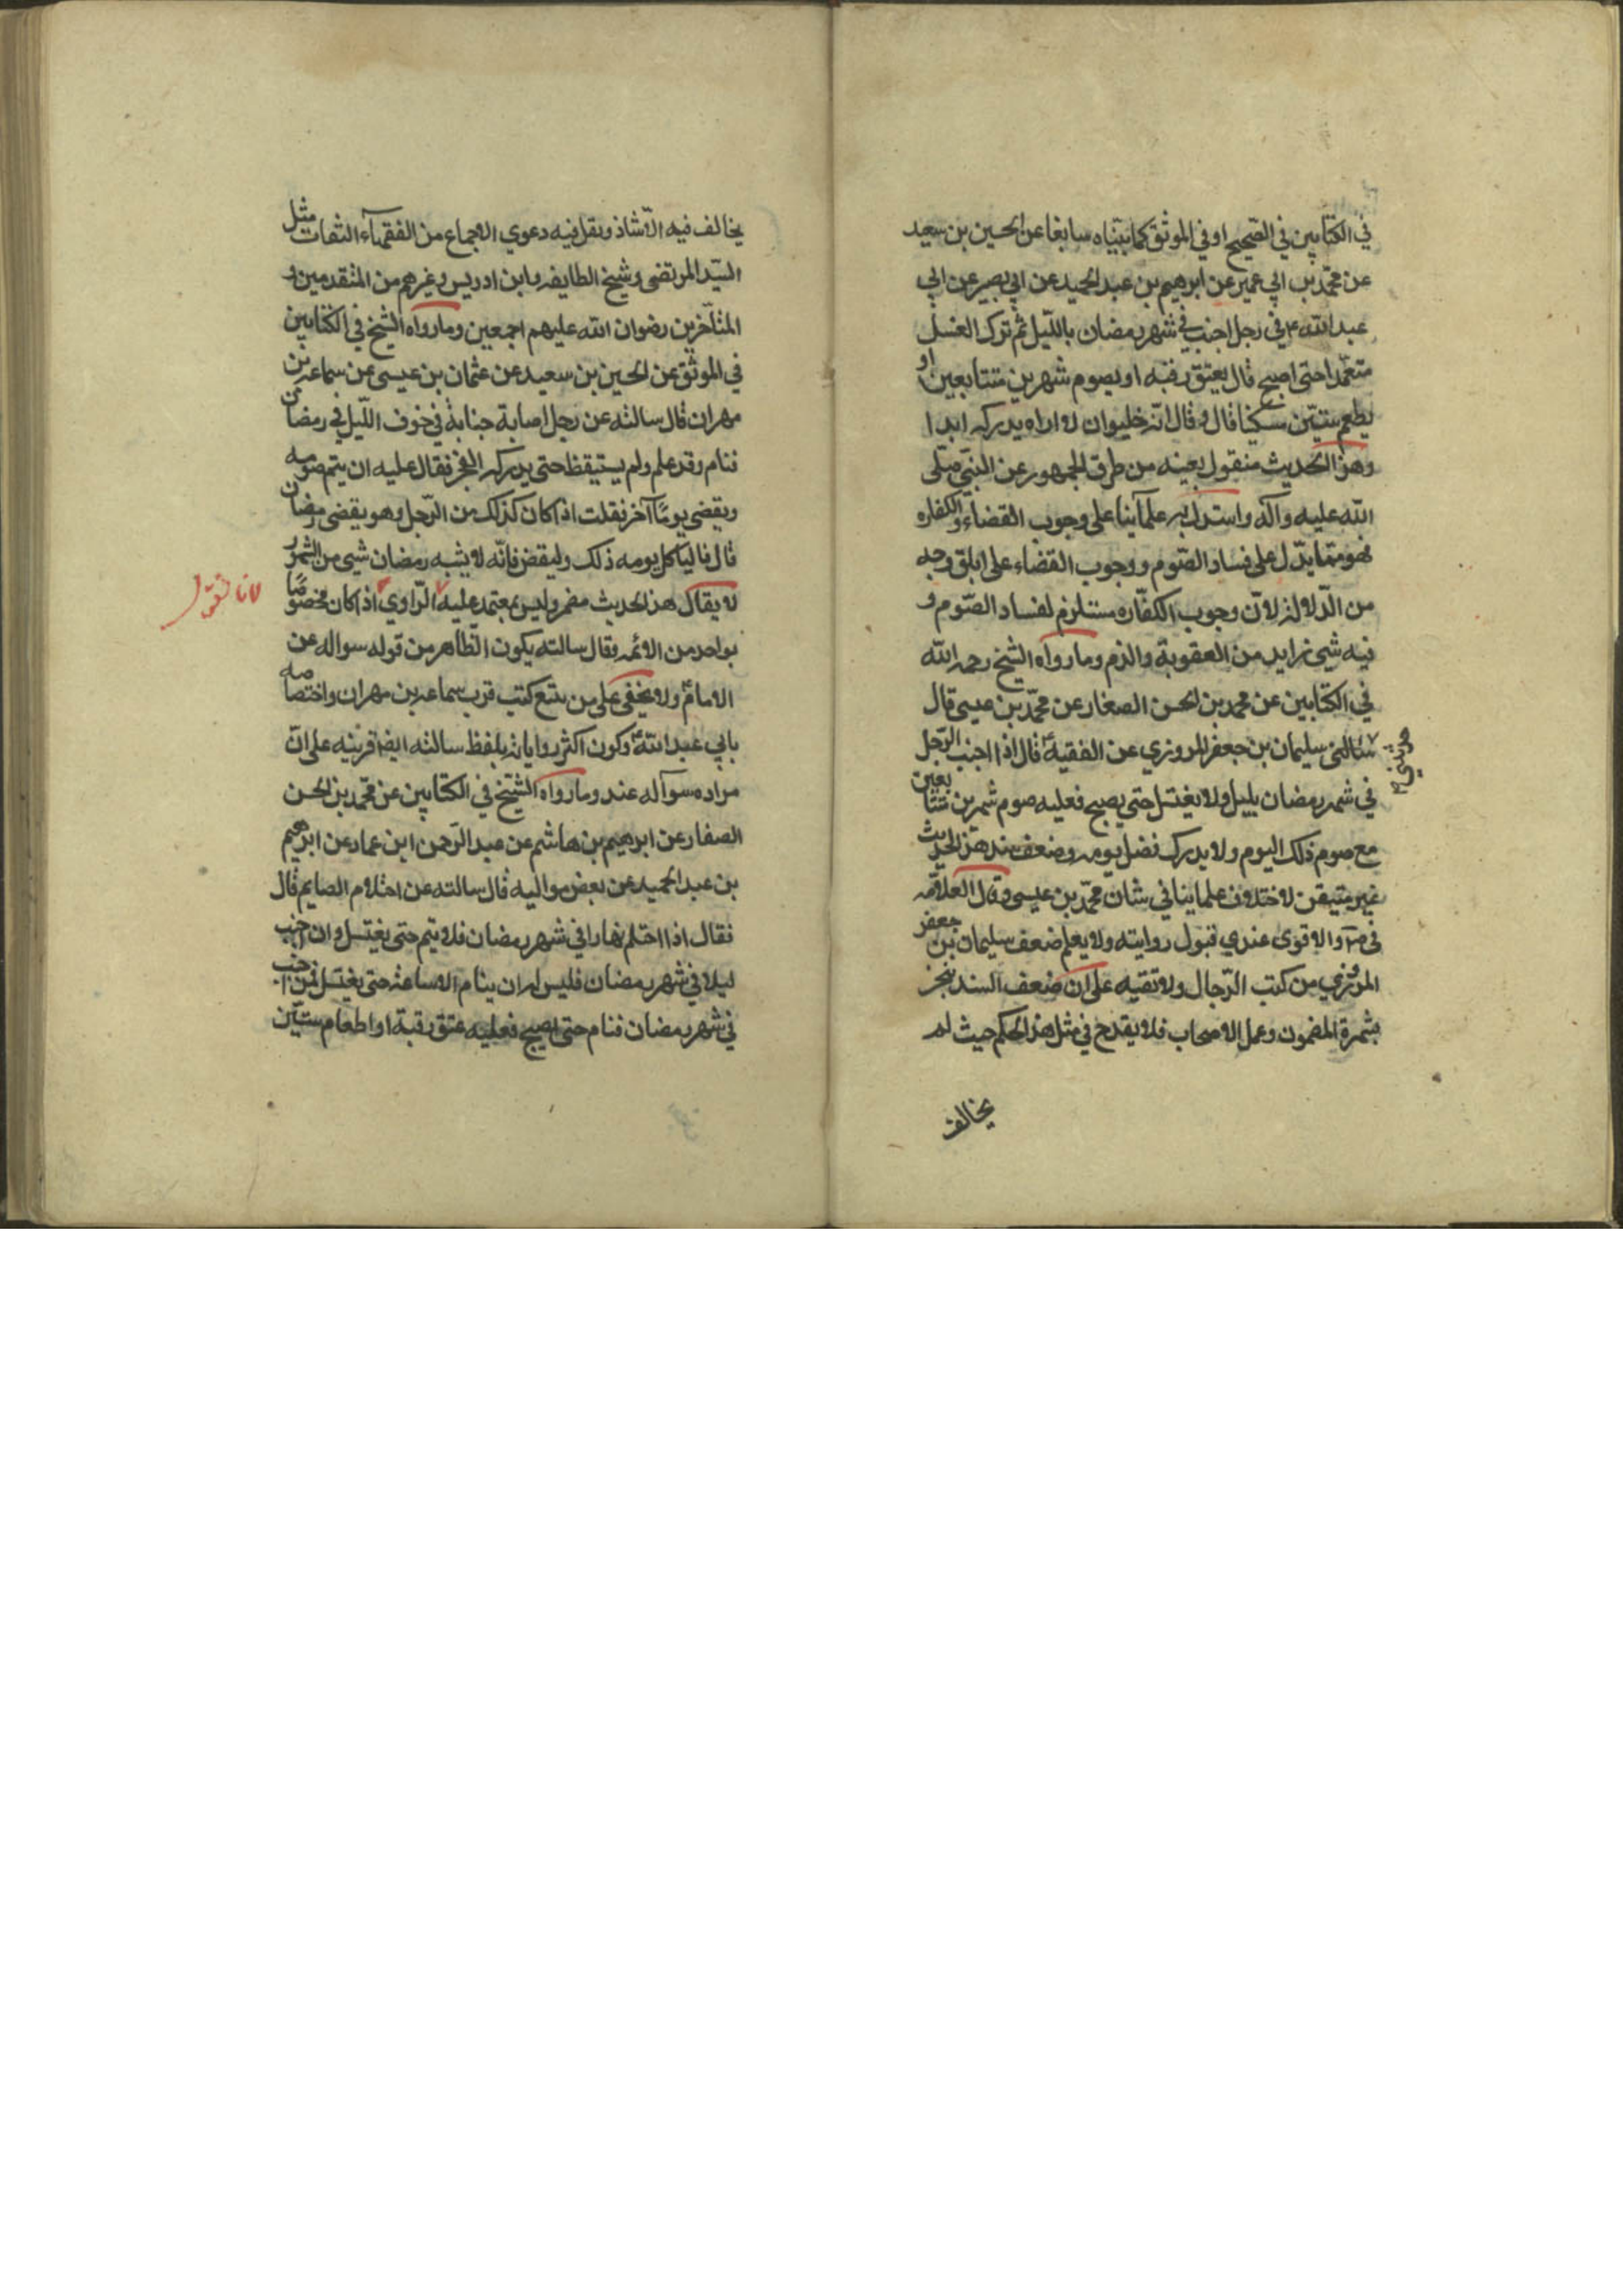 في الكتابين في الصحيح او في الموثق كما بيناه سابقا عن الحسين بن سعيد
عن محمد بن ابي عمير عن ابرهيم بن عبد الحميد عن ابي بصير عن ابي
عبد الله ع في رجل اجنب في شهر رمضان بالليل ثم ترك الغسل
متعمدا حتى اصبح قال يعتق رقبه او يصوم شهرين متتابعين او
يطعم ستين مسكينا قال و قال انه خليق ان لا اراه يدركه ابدا
وهذا الحديث منقول بعينه من طرق الجمهور عن النبي صلى
الله عليه وآله واستدل به علمآئنا على وجوب القضاء والكفاره
فهو مما يدل على فساد الصوم ووجوب القضاء على ابلغ وجه
من الدلالة لان وجوب الكفاره مستلزم لفساد الصوم و
فيه شي زايد من العقوبة والذم وما رواه الشيخ رحمه الله
في الكتابين عن محمد بن الحسن الصفار عن محمد بن عيسى قال
سالنى سليمان بن جعفر المروزي عن الفقيه ع قال اذا اجنب الرجل
في شهر رمضان بليل ولا يغتسل حتى يصبح فعليه صوم شهرين متتابعين
مع صوم ذلك اليوم ولا يدرك فضل يومه وضعف سند هذا الحديث
غير متيقن لاختلاف علماينا في شان محمد بن عيسى وقال العلامه
والاقوى عندي قبول روايته ولا يعلم ضعف سليمان بن جعفر
المروزي من كتب الرجال على ان ضعف السند ينجبر
بشهرة المضمون وعمل الاصحاب فلا يقدح في مثل هذا الحكم حيث لم
يخالف
يخالف فيه الا شاذ ونقل فيه دعوي الاجماع من الفقهآء الثقات مثل
السيد المرتضى وشيخ الطايفه وابن ادريس وغيرهم من المتقدمين و
المتاخرين رضوان الله عليهم اجمعين وما رواه الشيخ في الكتابين
في الموثق عن الحسين بن سعيد عن عثمان بن عيسى عن سماعه بن
مهران قال سالته عن رجل اصابة جنابة في جوف الليل في رمضان
فنام وقد علم ولم يستيقظ حتى يدركه الفجر فقال عليه ان يتم صومه
ويقضي يوما آخر فقلت اذا كان كذلك من الرجل وهو يقضى رمضان
قال فلياكل يومه ذلك وليقض فانه لا يشبه رمضان شي من الشهور
لا يقال هذا الحديث مضمر وليس بمعتمد عليه الراوي اذا كان مخصوصا
لانا نقول
بواحد من الائمه فقال سالته يكون الظاهر من قوله سواله عن
الامام ع ولا يخفى على من يتبع كتب قرب سماعه بن مهران واختصاصه
بابي عبد الله ع وكون اكثر رواياته بلفظ سالته ايضا قرينه على ان
مراده سوآله عنه وما رواه الشيخ في الكتابين عن محمد بن الحسن
الصفار عن ابرهيم بن هاشم عن عبد الرحمن ابن عماد عن ابرهيم
بن عبد الحميد عن بعض مواليه قال سالته عن احتلام الصايم قال
فقال اذا احتلم نهارا في شهر رمضان فلا يتم حتى يغتسل وان اجنب
ليلا في شهر رمضان فليس له ان ينام الا ساعة حتى يغتسل فمن اجنب
في شهر رمضان فنام حتى اصبح فعليه عتق رقبة او اطعام ستين